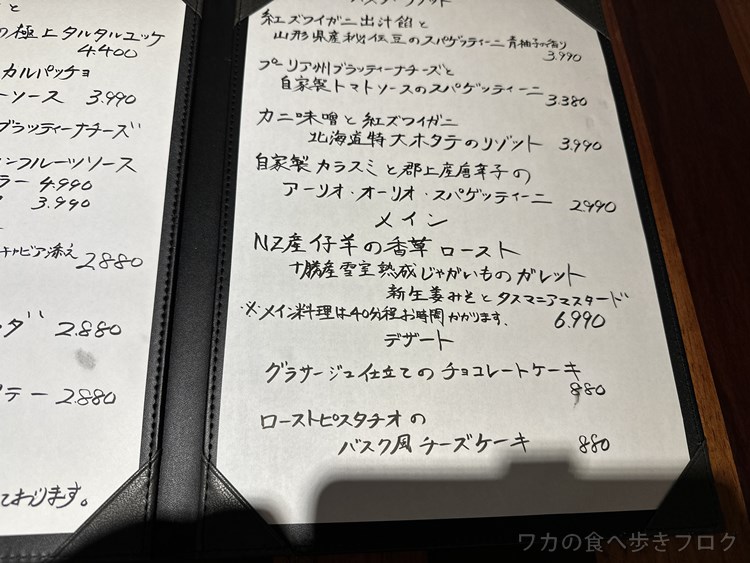 と
の極上タルタルユッケ
4.400
カルパッチョ
ーソース 3.990
ブラッティーナチーズ
ンフルーツソース
ラー 4.990
3.990
キャビア添え
2.880
ダ 2.880
テー 2.880
ております。
パスタ・リゾット
紅ズワイガニ出汁餡と
山形県産秘伝豆のスパゲッティーニ 青柚子の香り
3.990
プーリア州ブラッティーナチーズと
自家製トマトソースのスパゲッティーニ
3.380
カニ味噌と紅ズワイガニ
北海道特大ホタテのリゾット 3.990
自家製カラスミと郡上産唐辛子の
アーリオ・オーリオ・スパゲッティーニ 2.990
メイン
NZ産仔羊の香草ロースト
十勝産雪室熟成じゃがいものガレット
新生姜みそとタスマニアマスタード
※メイン料理は40分程お時間かかります。 6.990
デザート
グラサージュ仕立てのチョコレートケーキ
880
ローストピスタチオの
バスク風チーズケーキ 880
ワカの食べ歩きブログ